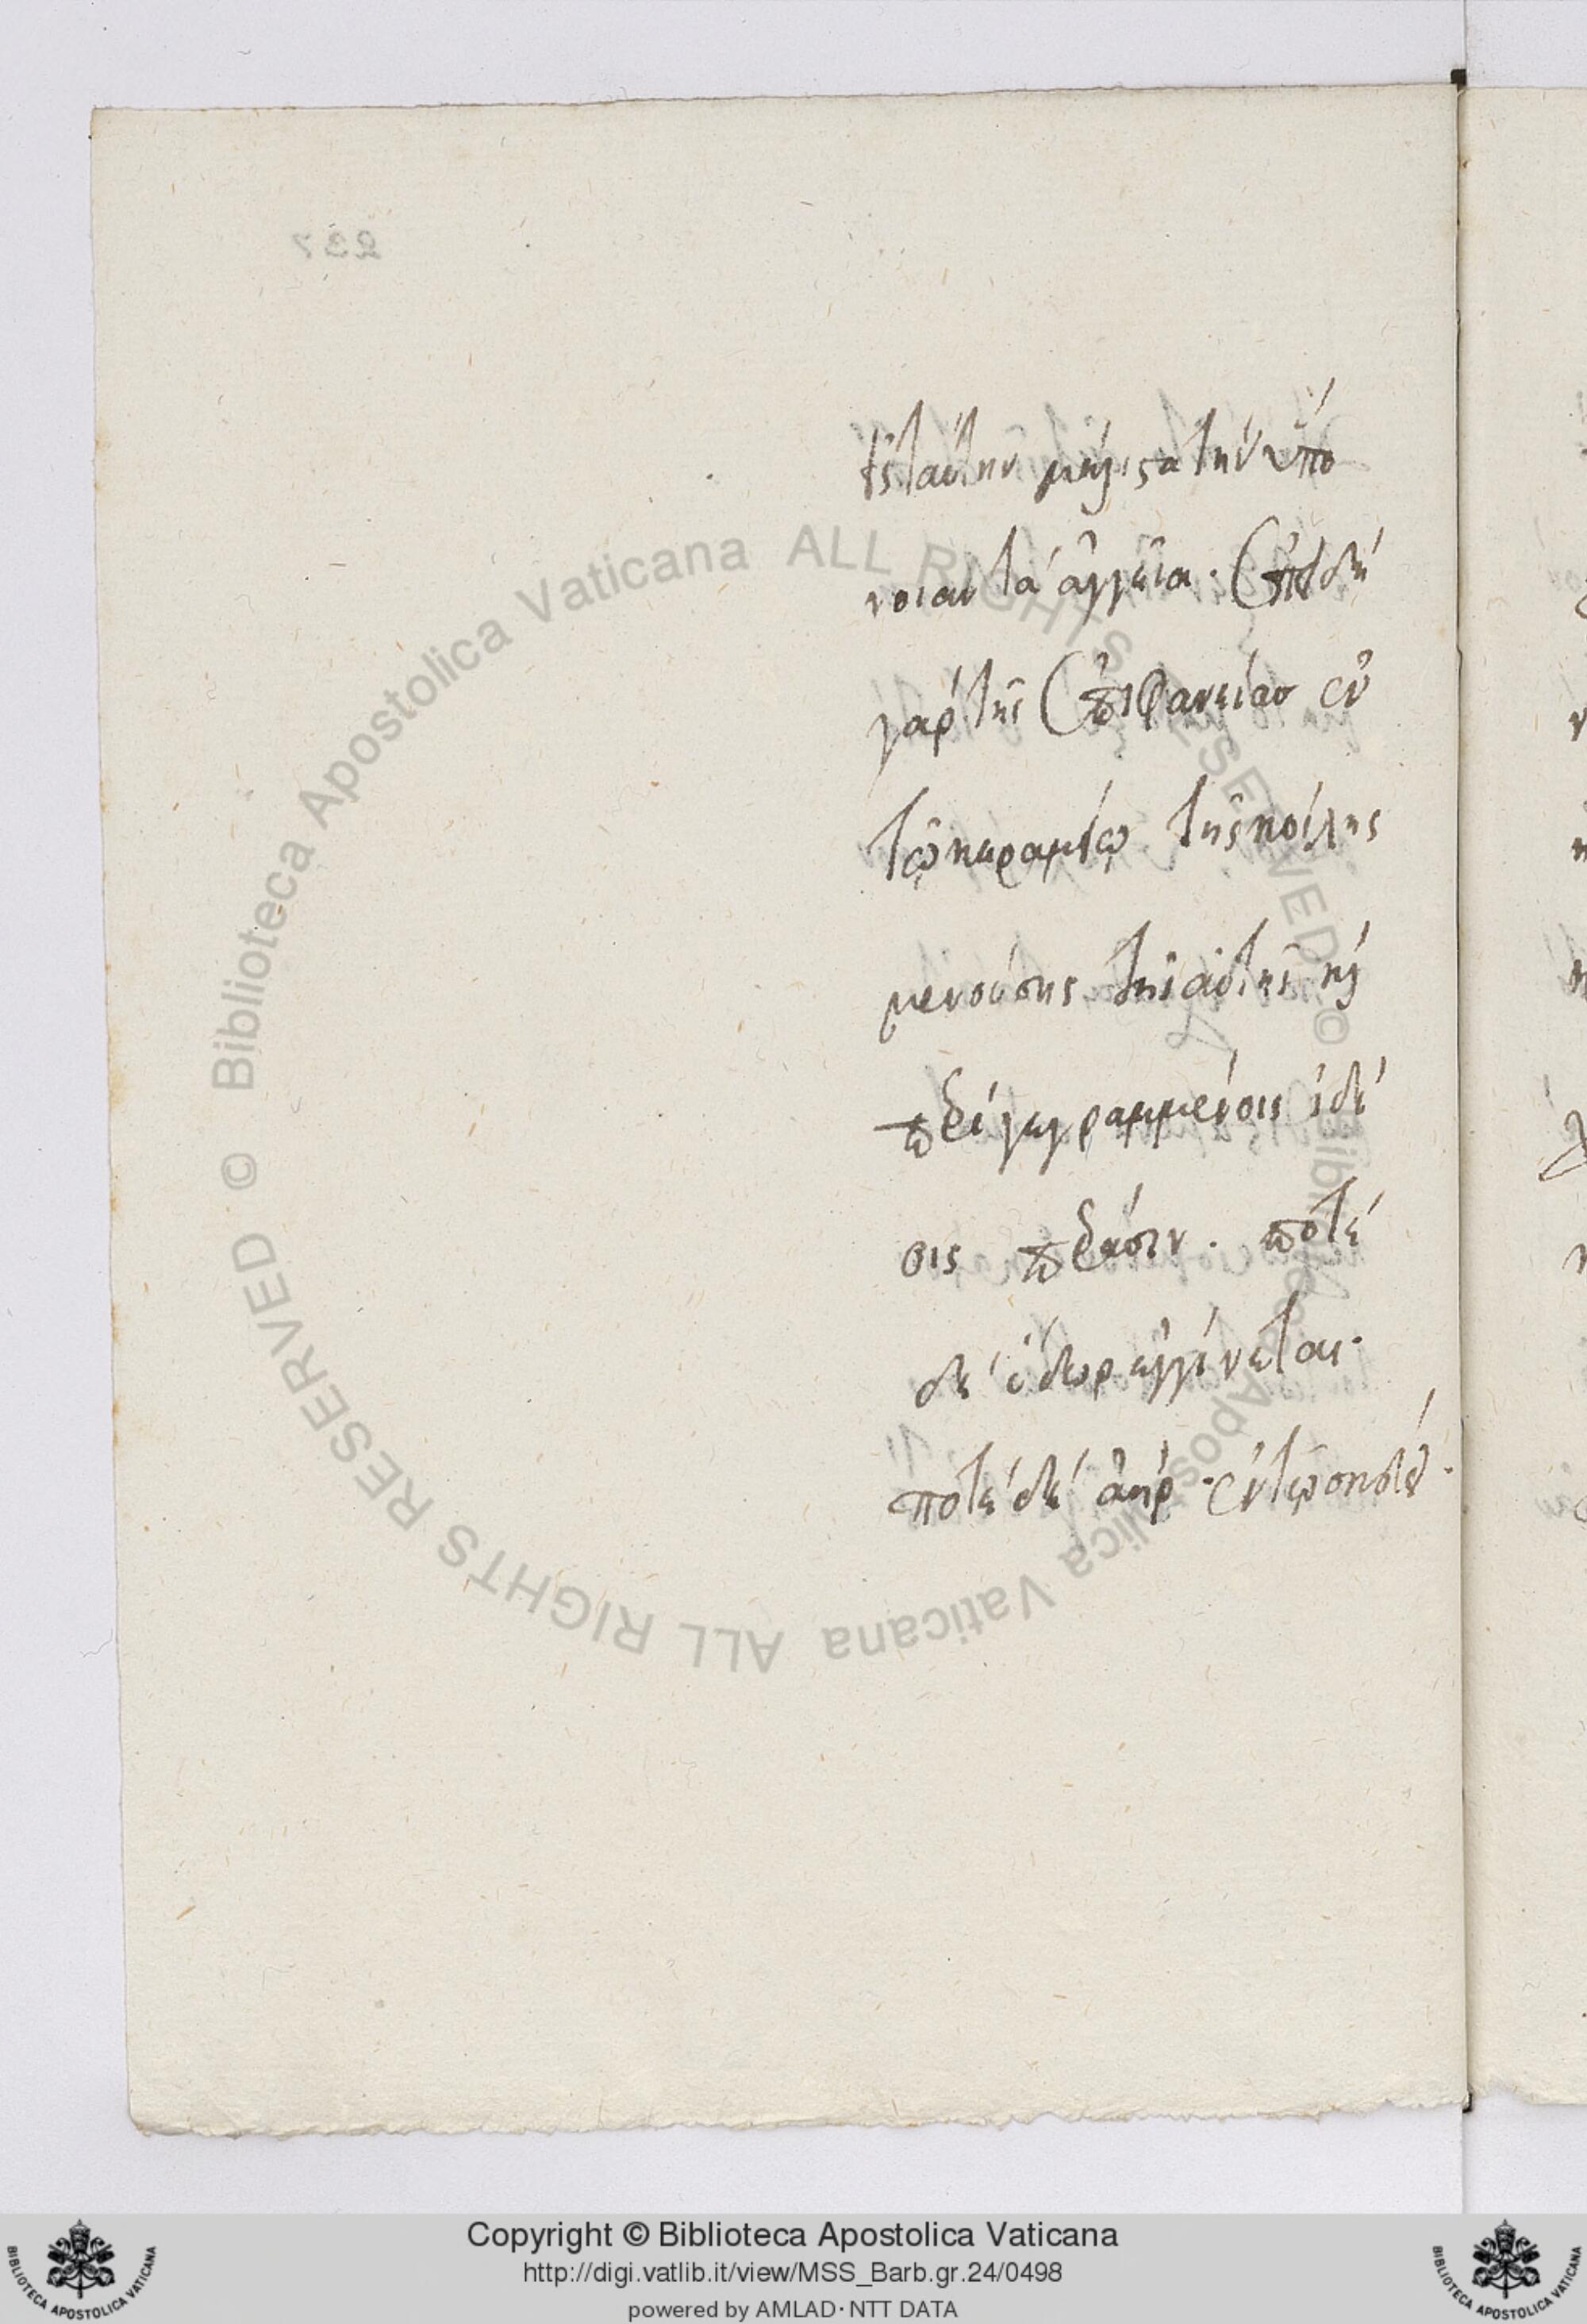 237
εἰς ταύτην μάλιστα τὴν ὑπό
νοιαν τὰ ἀγγεῖα. ἐπειδὴ
γὰρ τῆς ἐπιφανείας ἐν
τῶ κεραμίω τῆς κοίλης
μενούσης τῆς αὐτῆς καὶ
περιγεγραμμένοις
οις πέρασιν. ποτὲ
δὲ ὕδωρ ἐγγίνεται.
ποτὲ δὲ ἀὴρ. ἐν τῶ
© Biblioteca Apostolica Vaticana ALL RIGHTS RESERVED © Biblioteca Apostolica Vaticana ALL RIGHTS RESERVED
Copyright © Biblioteca Apostolica Vaticana
http://digi.vatlib.it/view/MSS_Barb.gr.24/0498
powered by AMLAD · NTT DATA
BIBLIOTECA APOSTOLICA VATICANA
BIBLIOTECA APOSTOLICA VATICANA